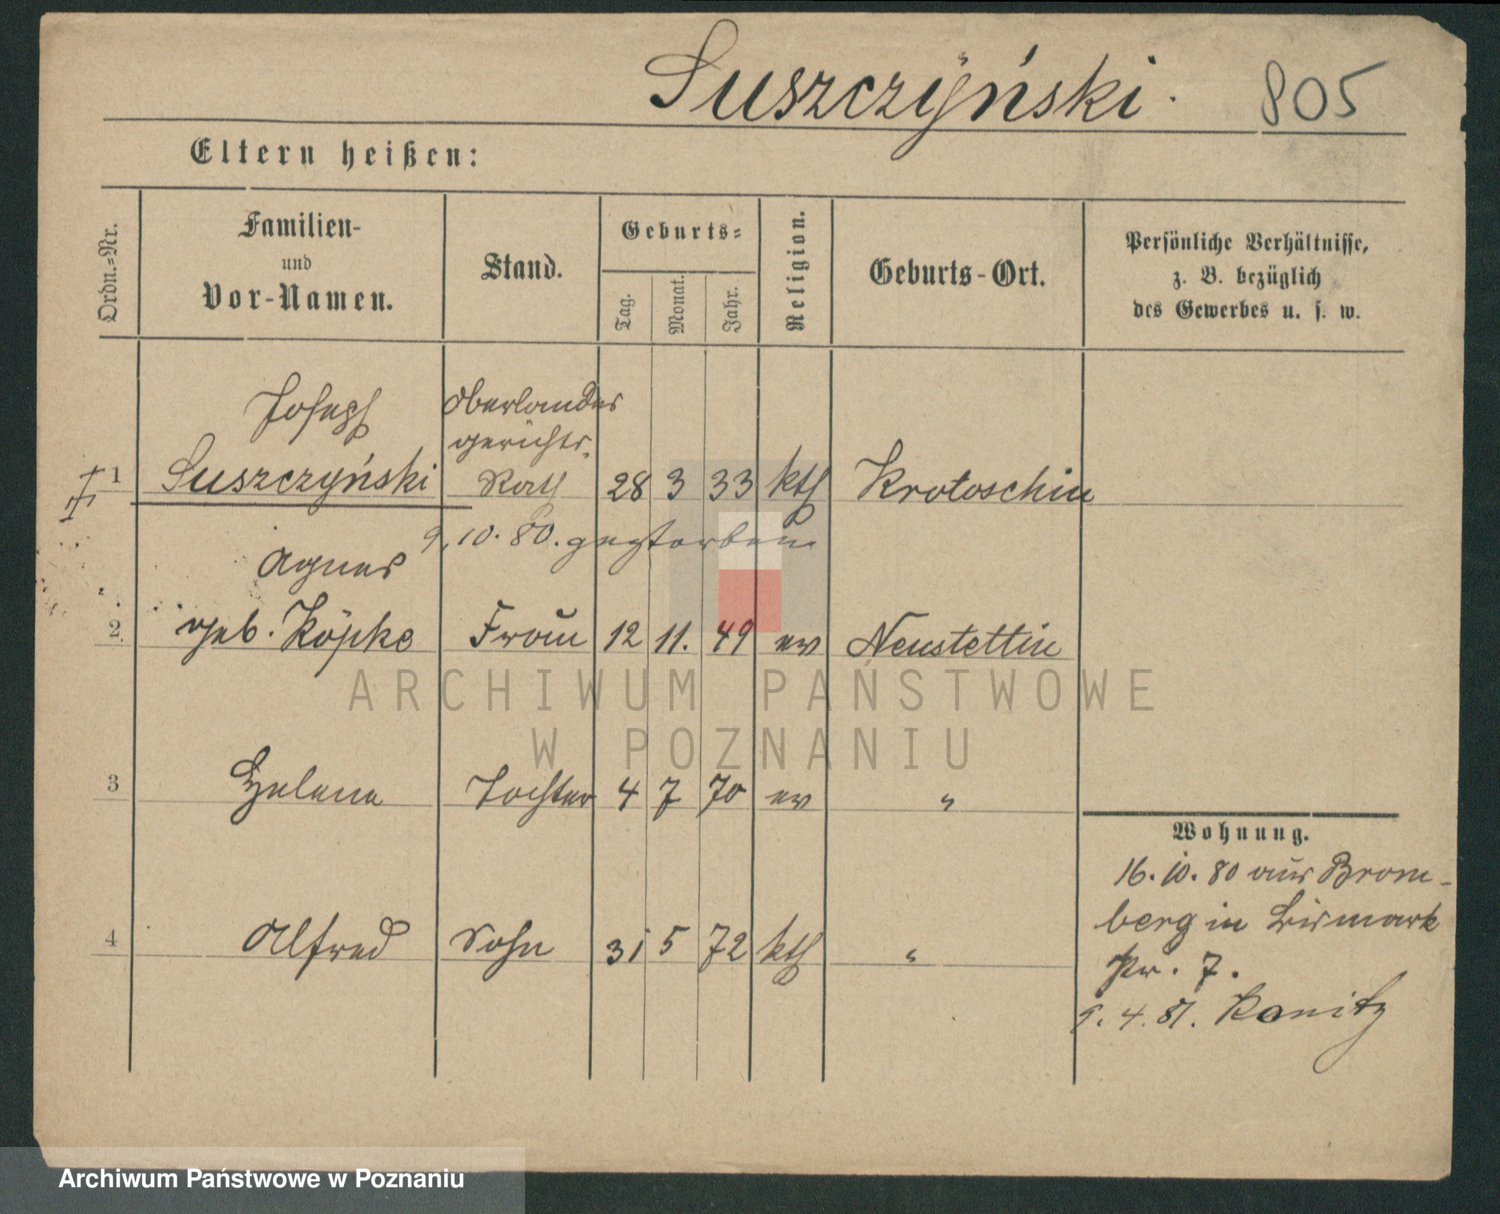 Suszczÿński. 805
Eltern heißen:
Ordn.-Nr.
Familien-
und
Vor-Namen.
Stand.
Geburts-
Tag.
Monat.
Jahr.
Religion.
Geburts-Ort.
Persönliche Verhältnisse,
z. B. bezüglich
des Gewerbes u. s. w.
Joseph Oberlandes
gerichts-
1 Suszczyński Rath 28 3 33 kth Krotoschin
9.10.80. gestorben
Agnes
2. geb. Köpke Frau 12 11. 49 ev Neustettin
ARCHIWUM PAŃSTWOWE
W POZNANIU
3 Helene Tochter 4 7 70 ev "
4 Alfred Sohn 31 5 72 kth "
Wohnung.
16.10.80 aus Brom-
berg in Bismark
7.
4.81. Konitz
Archiwum Państwowe w Poznaniu